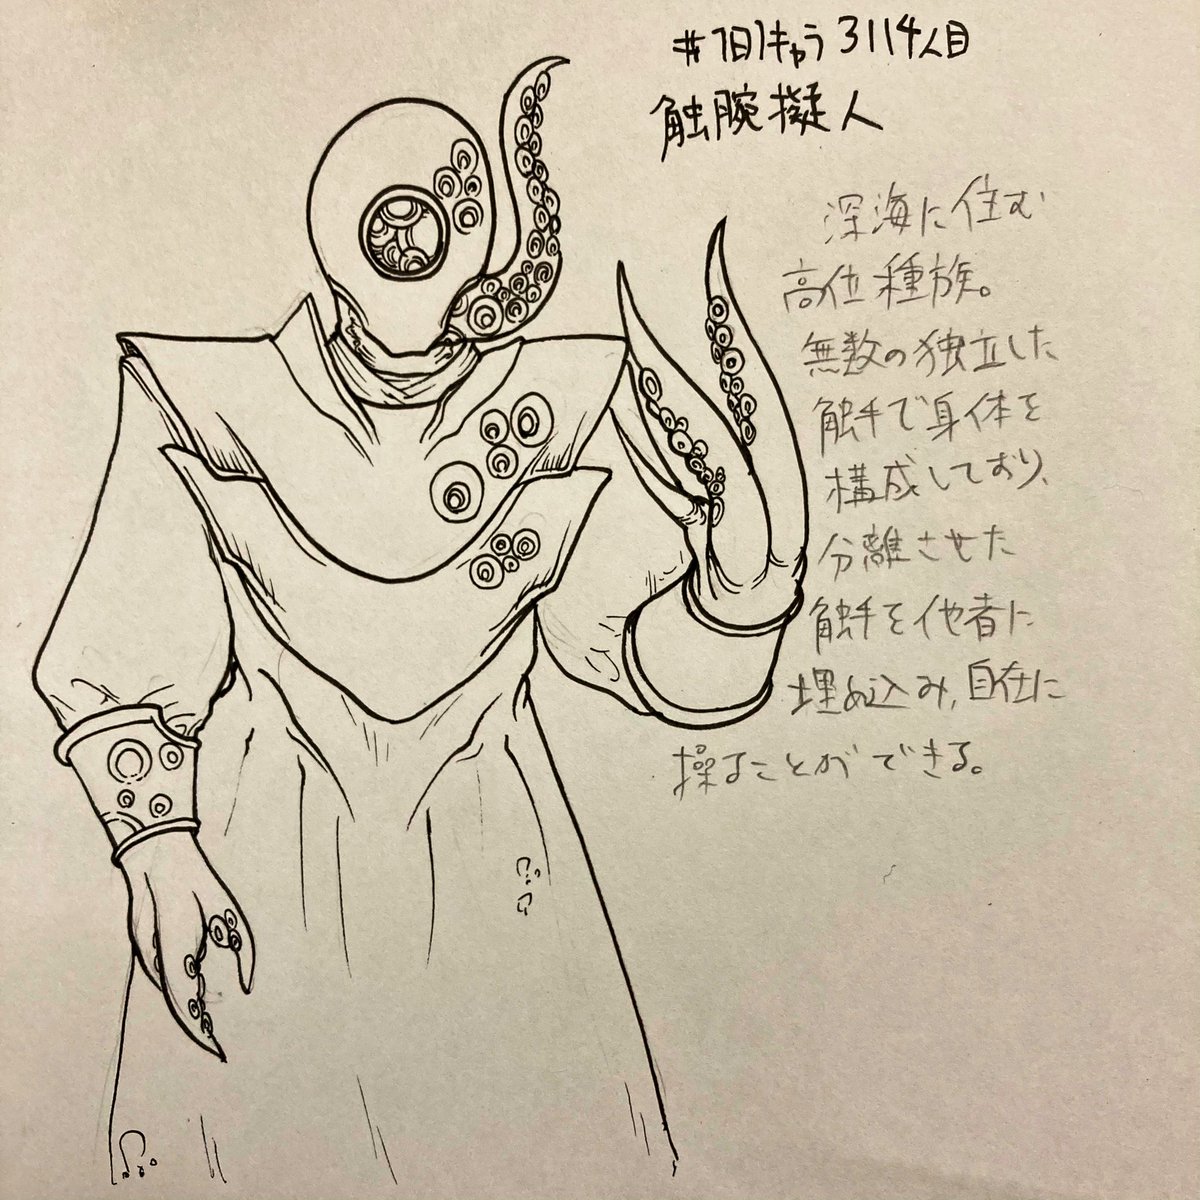 #1日1キャラ 3114人目
触腕擬人
深海に住む
高位種族。
無数の独立した
触手で身体を
構成しており、
分離させた
触手を他者に
埋め込み、自在に
操ることができる。